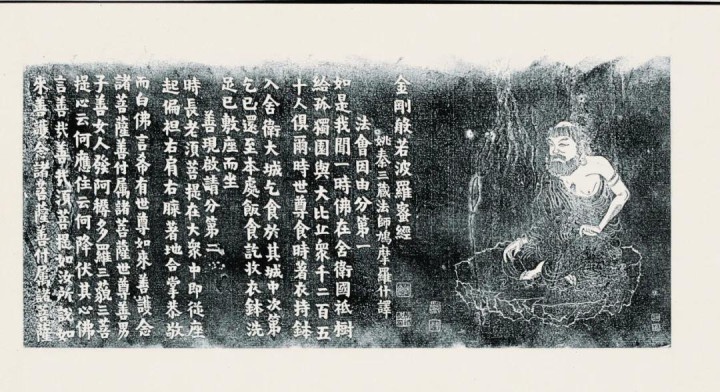 金剛般若波羅蜜經
姚秦三藏法師鳩摩羅什譯
法會因由分第一
如是我聞一時佛在舍衛國祗樹
給孤獨園與大比丘衆千二百五
十人俱爾時世尊食時著衣持鉢
入舍衛大城乞食於其城中次第
乞已還至本處飯食訖收衣鉢洗
足已敷座而坐
善現啟請分第二
時長老須菩提在大衆中即從座
起偏袒右肩右膝著地合掌恭敬
而白佛言希有世尊如來善護念
諸菩薩善付屬諸菩薩世尊善男
子善女人發阿耨多羅三藐三菩
提心云何應住云何降伏其心佛
言善哉善哉須菩提如汝所說如
來善護念諸菩薩善付屬諸菩薩